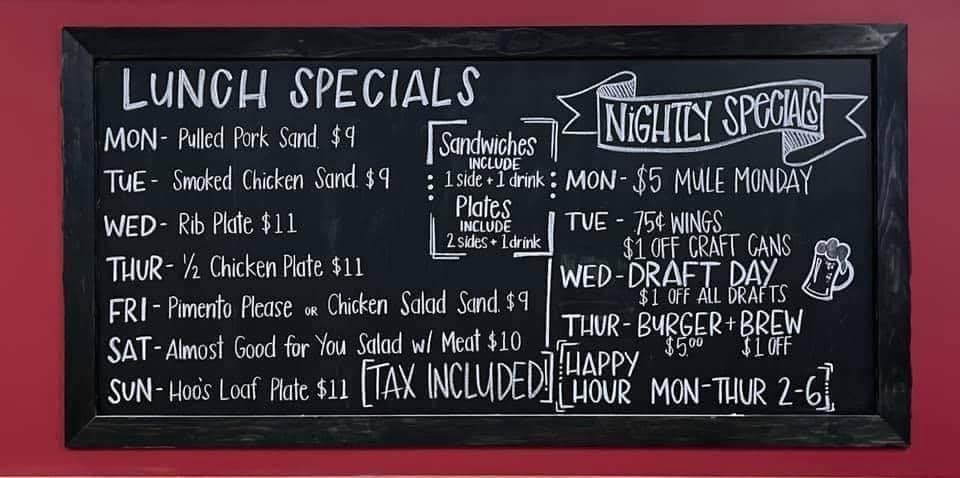 LUNCH SPECIALS
MON- Pulled Pork Sand. $9
TUE- Smoked Chicken Sand. $9
WED- Rib Plate $11
THUR- ½ Chicken Plate $11
FRI- Pimento Please OR Chicken Salad Sand. $9
SAT- Almost Good for You Salad w/ Meat $10
SUN- Hoo's Loaf Plate $11 [TAX INCLUDED!]
Sandwiches
INCLUDE
1 side + 1 drink
Plates
INCLUDE
2 sides + 1 drink
NiGHTLY SPECIALS
MON- $5 MULE MONDAY
TUE - .75¢ WINGS
$1 OFF CRAFT CANS
WED- DRAFT DAY
$1 OFF ALL DRAFTS
THUR- BURGER + BREW
$5.00 $1 OFF
HAPPY
HOUR MON-THUR 2-6